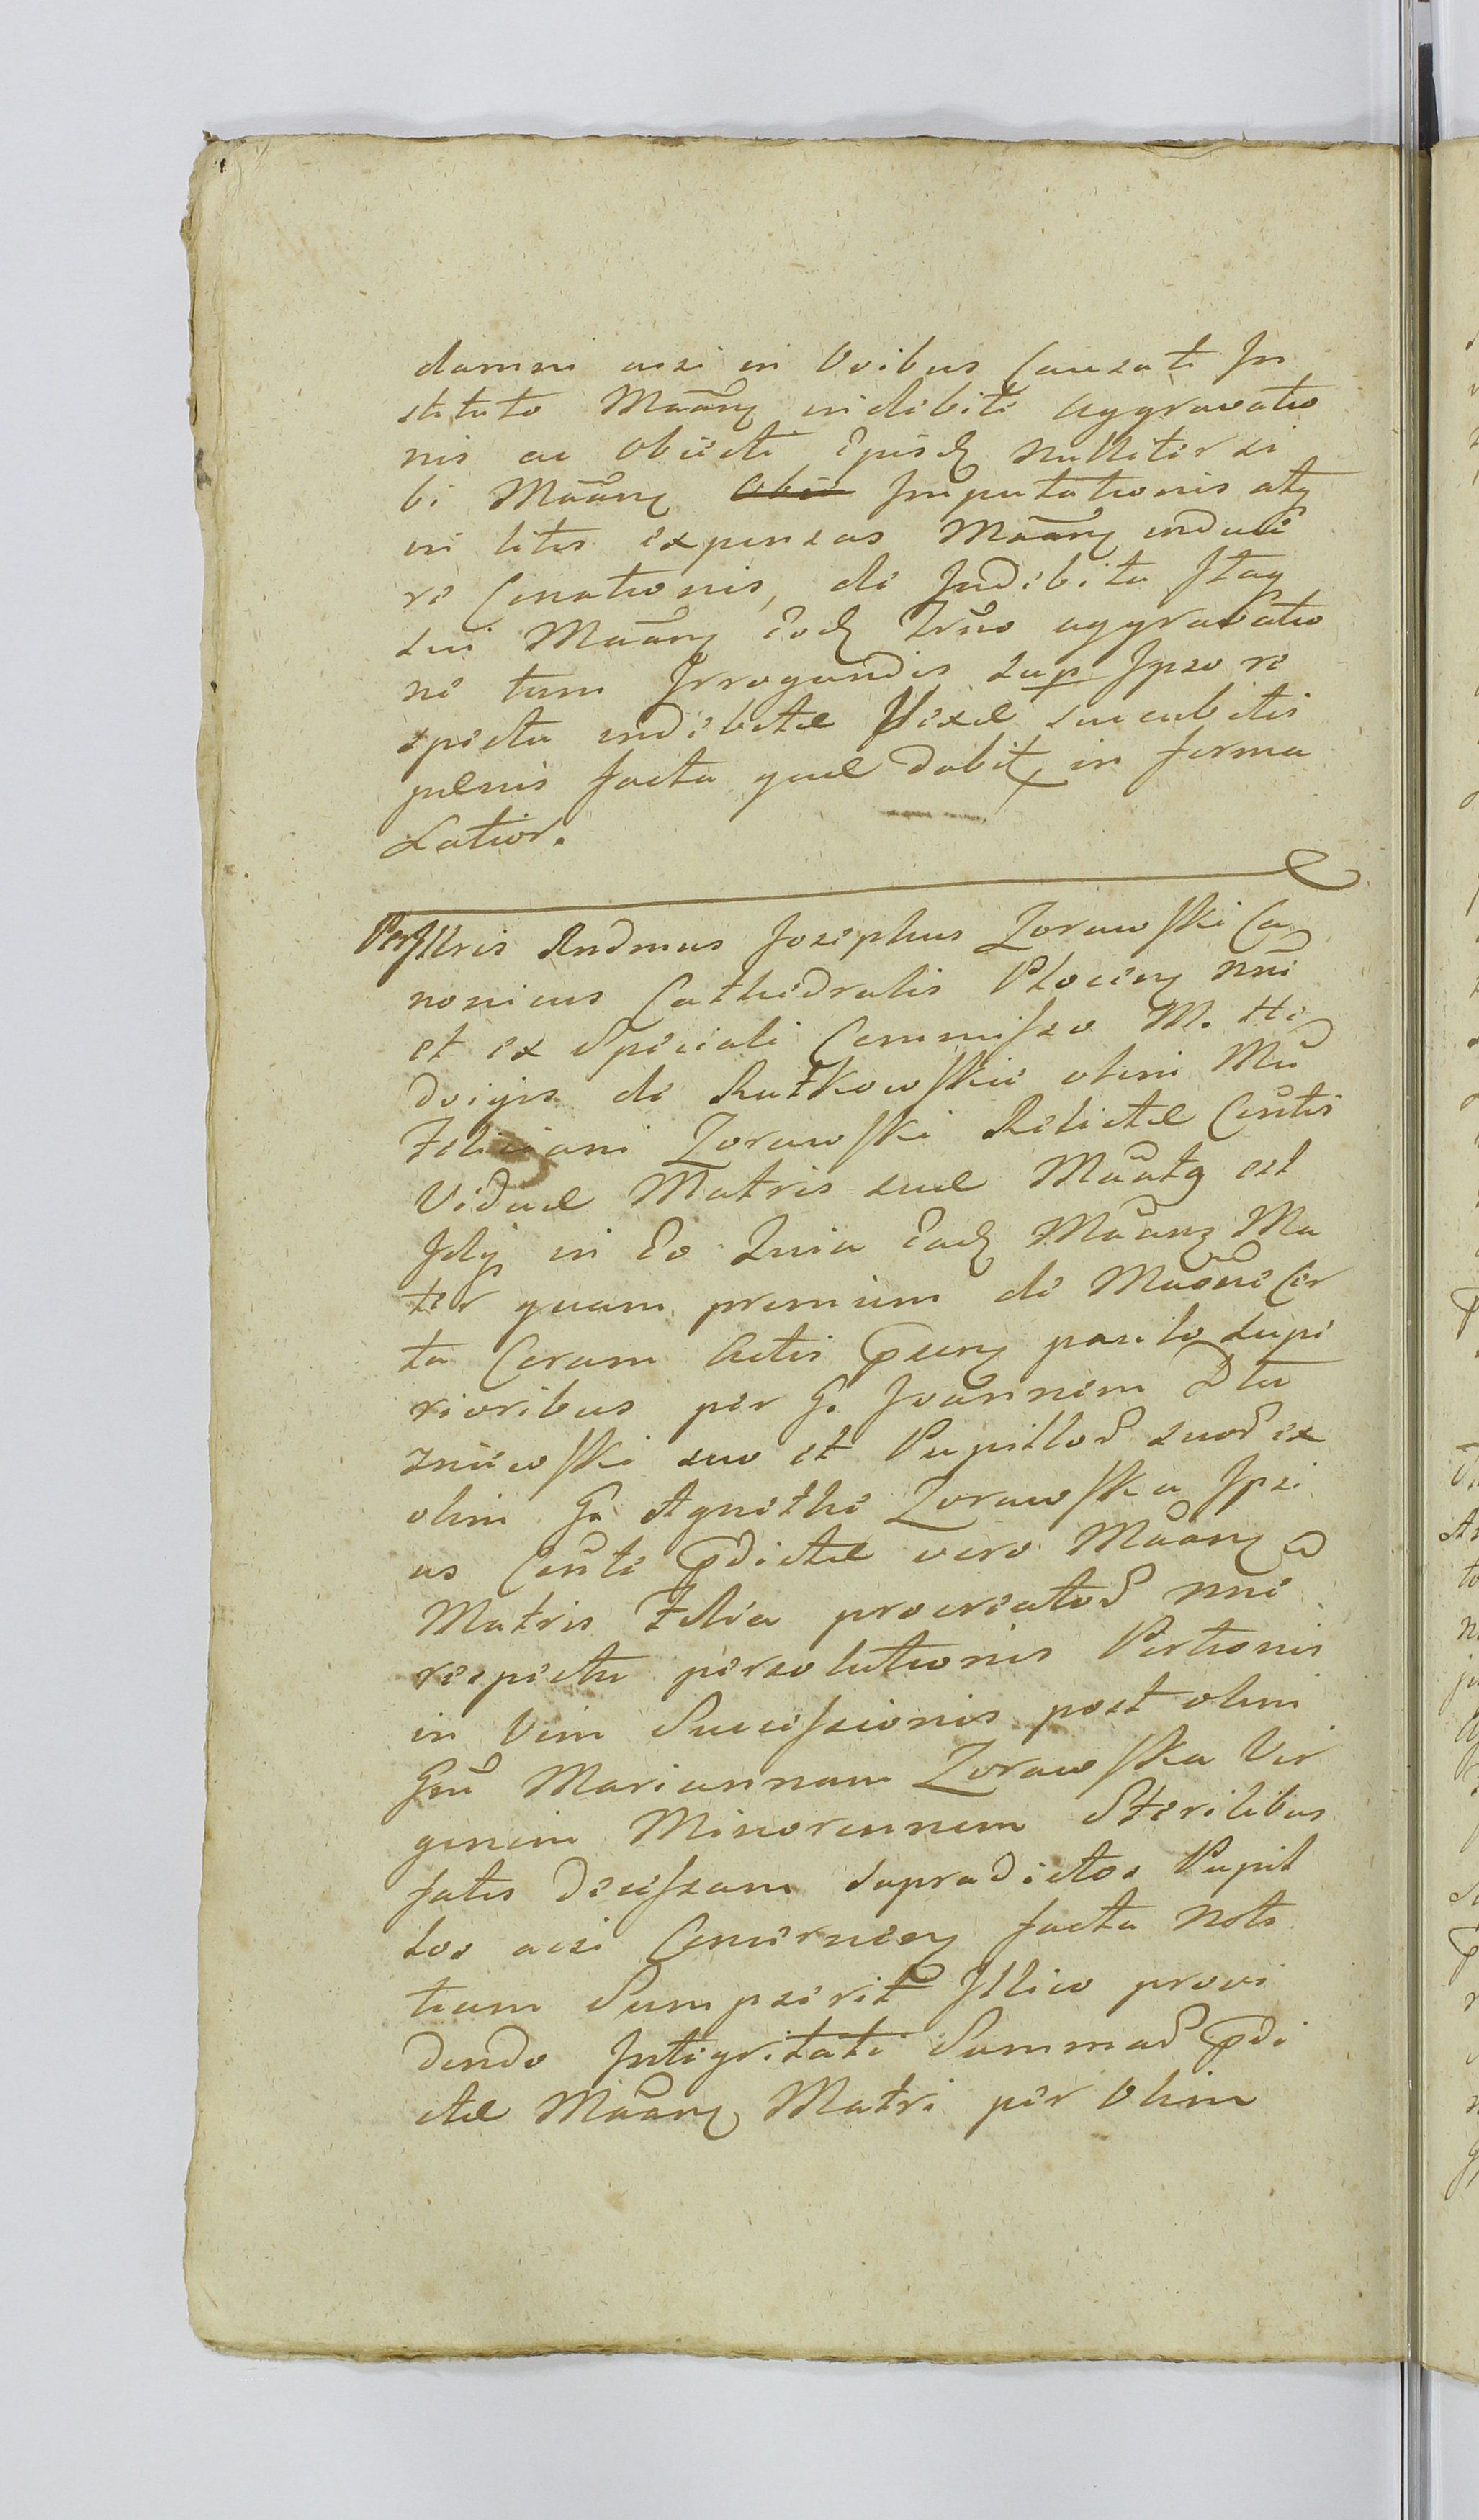 damni acsi in Ovibus Causati In
stituto Mãang indebiti aggravatio
nis ac Obiecti Ejusd nulliter si
bi Mãang Obie Imputationis atq
in litis expensas Mãang induce
re Conationis, de Indebita Itaq
sui Mãang Eod Trño aggravatio
ne tum Irrogandis sup Ipso re
spectu indebitæ Vexæ succubitis
pœnis facta quæ dabit in forma
Latior.
PerIllris Rndmus Josephus Zorawski Ca
nonicus Cathedralis Plocen nñi
et ex Speciali Commisso M. He
dvigis de Rutkowskie olim Mĩ
Feliciani Zorawski Relictæ Cõntis
Viduæ Matris suæ Mãatg est
fdg in Eo Quia Ead Mãang Ma
ter quam primum de Mãõne Cer
ta Coram Actis psng paulo supe
rioribus per G. Joannem Dłu
zniewski suo et Pupillor suor ex
olim G. Agnethe Zorawska Ipsi
us Cõnte pdictæ vero Mãang
Matris Filia procreator nñe
respectu persolutionis Portionis
in Vim Successionis post olim
Gñ Mariannam Zorawska Vir
ginem Minorennem Sterilibus
fatis Decessam supradictos Pupil
los acsi Concernen facta Noti
tiam Sumpserit Illico provi
dendo Integritati Summar pdi
ctæ Mãang Matri per Olim